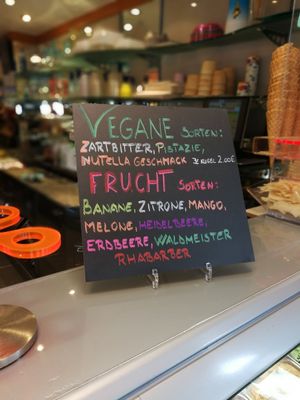 VEGANE SORTEN:
ZARTBITTER, PISTAZIE,
NUTELLA GESCHMACK JE KUGEL 2.00€
FRUCHT SORTEN:
BANANE, ZITRONE, MANGO,
MELONE, HEIDELBEERE,
ERDBEERE, WALDMEISTER
RHABARBER